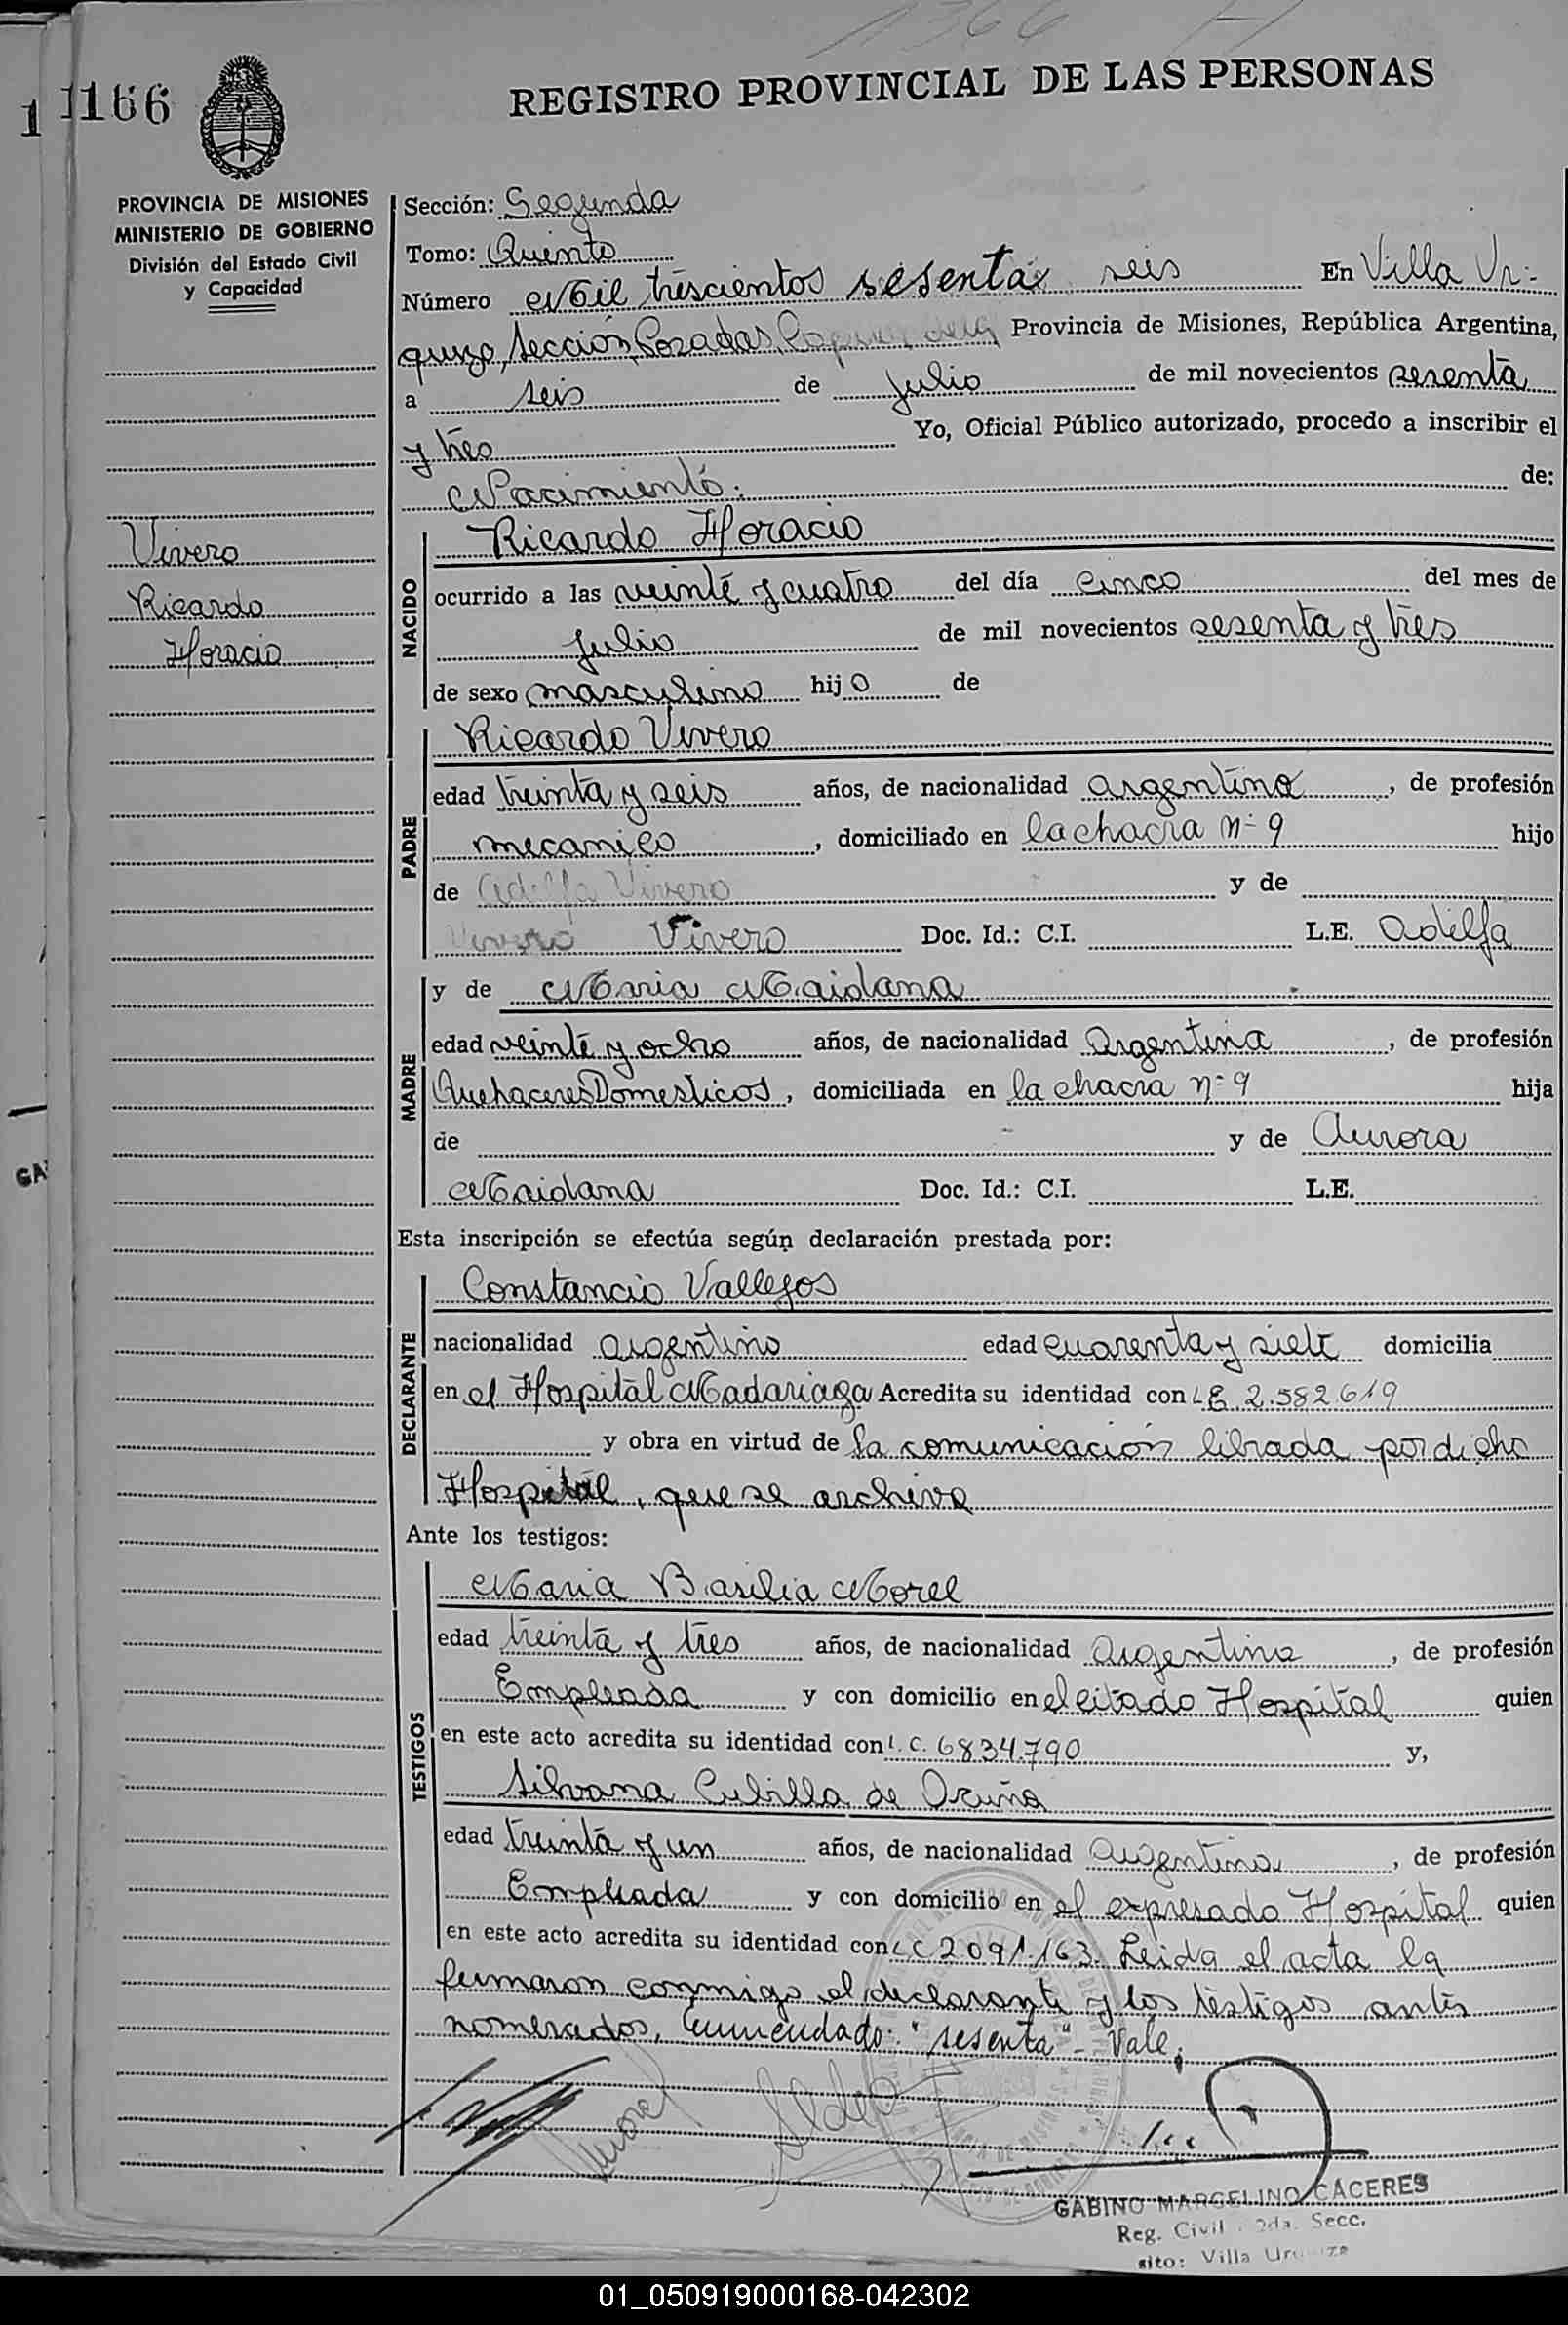 1366
1 1166
REGISTRO PROVINCIAL DE LAS PERSONAS
PROVINCIA DE MISIONES
MINISTERIO DE GOBIERNO
División del Estado Civil
y Capacidad
Sección: Segunda
Tomo: Quinto
Número Mil trescientos sesenta seis En Villa Ur-
quiza, Sección Posadas, Provincia de Misiones, República Argentina,
a seis de julio de mil novecientos sesenta
y tres Yo, Oficial Público autorizado, procedo a inscribir el
Nacimiento. de:
Vivero
Ricardo
Horacio
NACIDO
Ricardo Horacio
ocurrido a las veinte y cuatro del día cinco del mes de
julio de mil novecientos sesenta y tres
de sexo masculino hijo de
PADRE
Ricardo Vivero
edad treinta y seis años, de nacionalidad argentino, de profesión
mecanico, domiciliado en la chacra nº 9 hijo
de Adelfa Vivero y de
Vivero Vivero Doc. Id.: C.I. L.E. Adelfa
MADRE
y de Maria Maidana
edad veinte y ocho años, de nacionalidad Argentina, de profesión
Quehaceres Domesticos, domiciliada en la chacra nº 9 hija
de y de Aurora
Maidana Doc. Id.: C.I. L.E.
Esta inscripción se efectúa según declaración prestada por:
DECLARANTE
Constancio Vallejos
nacionalidad argentino edad cuarenta y siete domicilia
en el Hospital Madariaga Acredita su identidad con L E 2.582.619
y obra en virtud de la comunicación librada por dicho
Hospital, que se archiva
Ante los testigos:
TESTIGOS
Maria Basilia Morel
edad treinta y tres años, de nacionalidad Argentina, de profesión
Empleada y con domicilio en el citado Hospital quien
en este acto acredita su identidad con L.C. 6834.790 y,
Silvana Cubilla de Ozuña
edad treinta y un años, de nacionalidad Argentina, de profesión
Empleada y con domicilio en el expresado Hospital quien
en este acto acredita su identidad con L C 2091.163. Leida el acta la
firmaron conmigo el declarante y los testigos antes
nomerados, Enmendado: "sesenta" - Vale.
Morel
GABINO MARCELINO CACERES
Reg. Civil 2da. Secc.
sito: Villa Urquiza
01_050919000168-042302